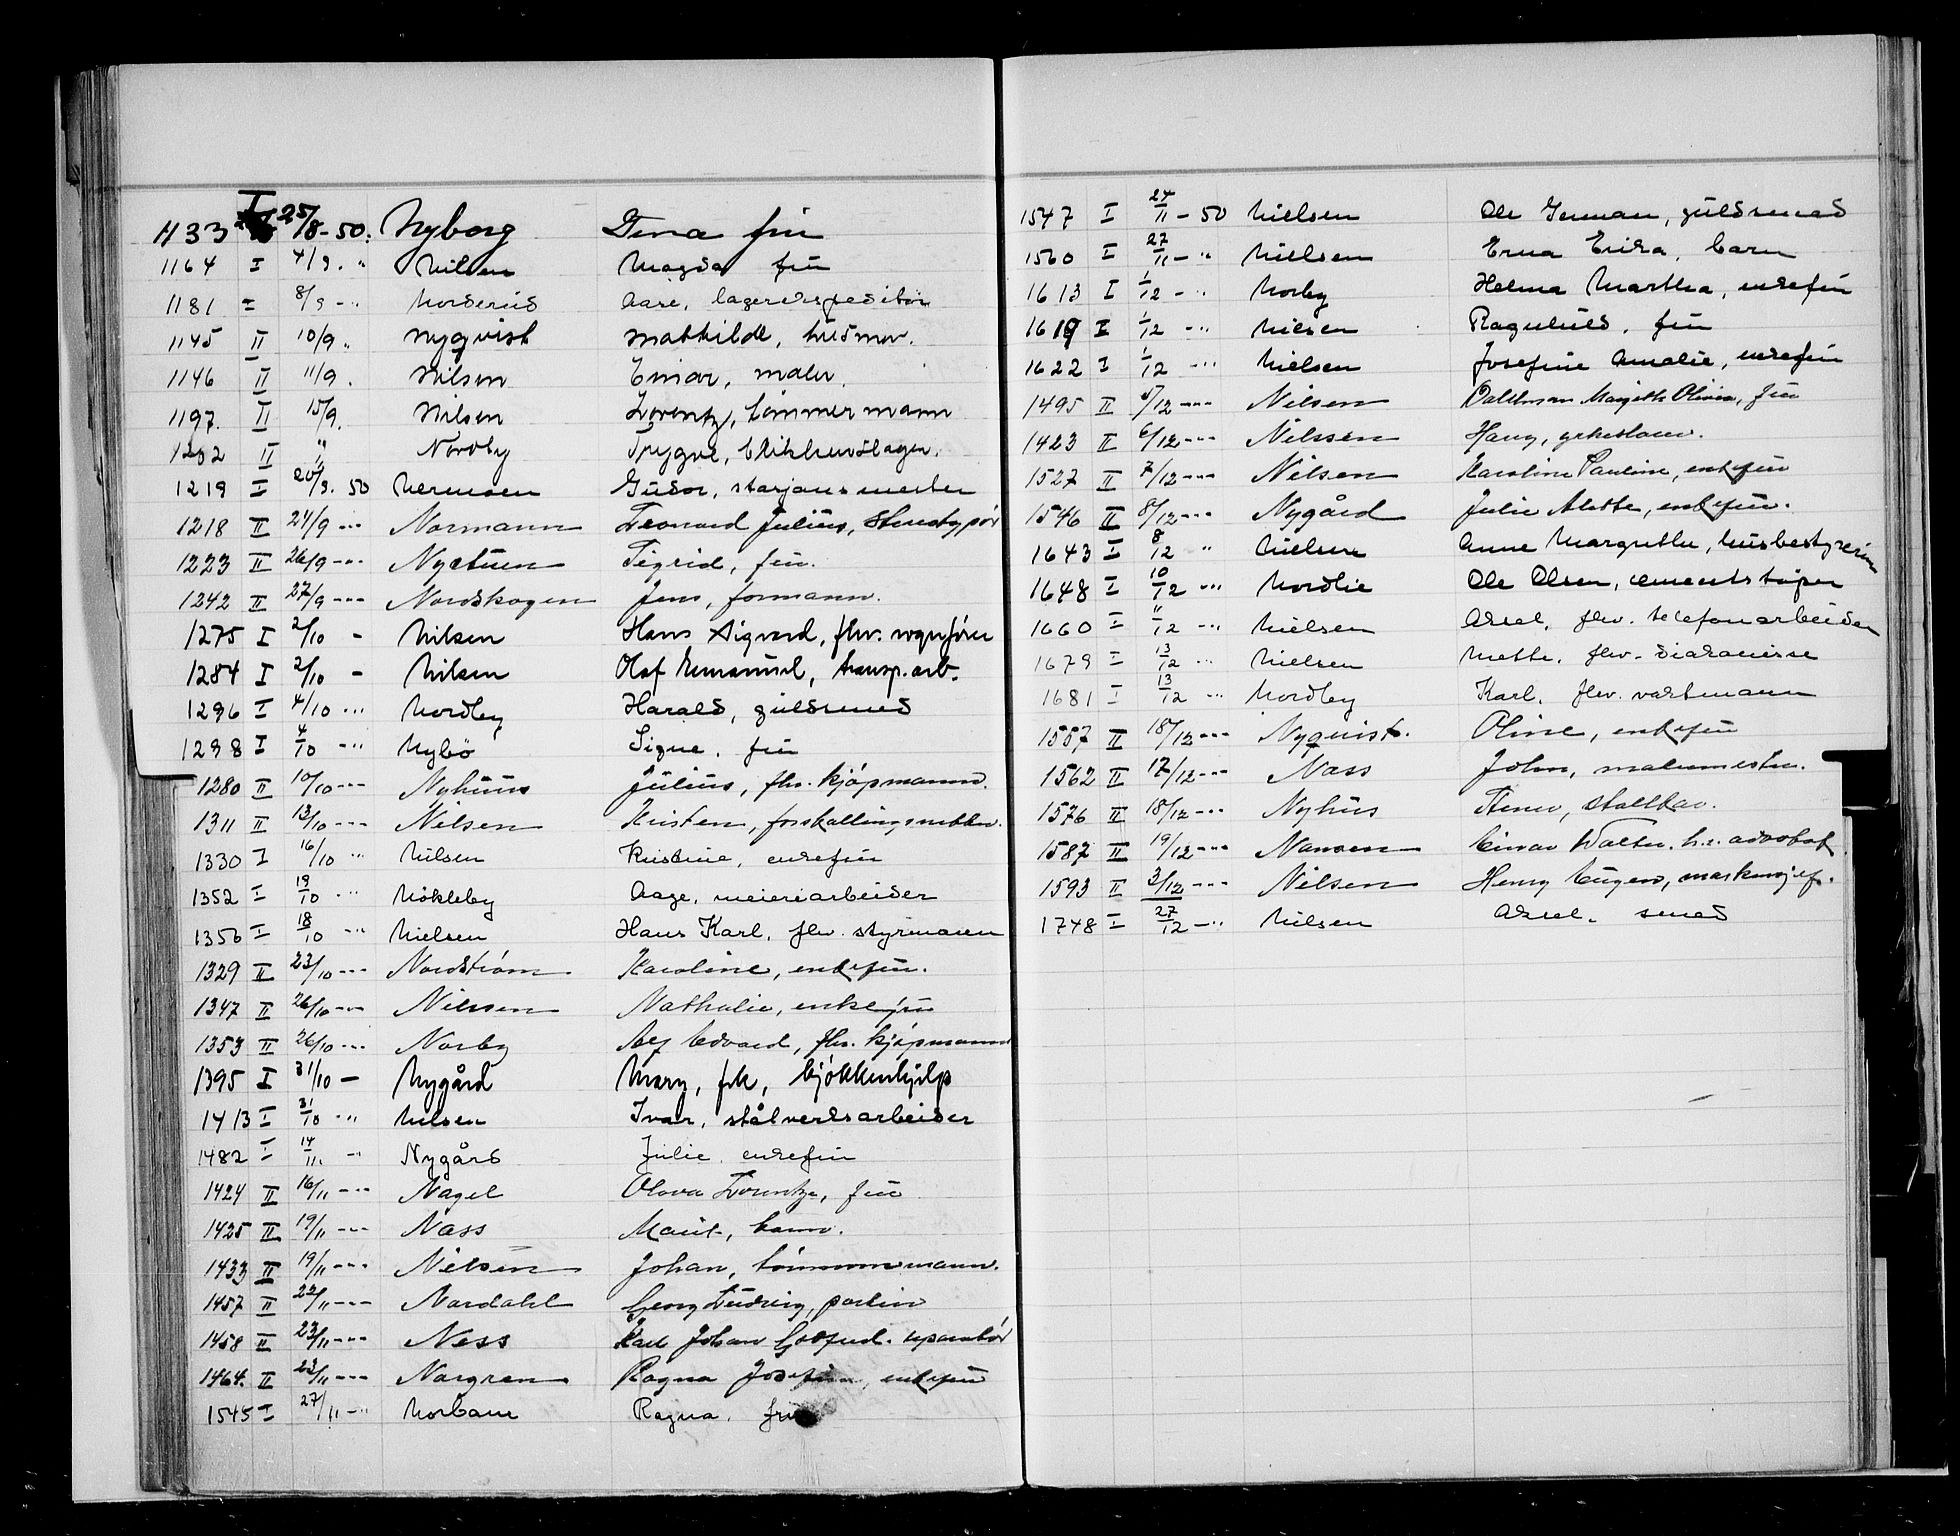 1133 I 25/8-50. Nyborg Dina frü
1164 I 4/9. " Nilsen Magda frü
1181 I 8/9 - " Norderud Aase, lagerekspeditør
1145 II 10/9 " Nyqvist Mathilde, husmor.
1146 II 11/9. Nilsen Einar, maler.
1197. II 15/9. Nilsen Lorentz, tömmermann
1202 II " Nordby Trygve, blikkenslager.
1219 I 20/9. 50 Nermoen Gudor, stasjonsmester
1218 II 24/9 -"- Normann Leonard Julius, stenotypör
1223 II 26/9 -"- Nyctuen Sigrid, frü.
1242 II 27/9 -"- Nordskogen Jens, formann.
1275 I 2/10 - Nilsen Hans Sigvard, fhv. vognfører
1284 I 2/10 - Nilsen Olaf Emanuel, transp. arb.
1296 I 4/10 -"- Nordby Harald, gülsmed
1298 I 4/10 -"- Nybö Signe, frü
1280 II 10/10 -"- Nyhuus Julius, fhv. kjöpmann.
1311 II 13/10 -"- Nilsen Kristen,
1330 I 16/10 -"- Nilsen Kristine, enkefrü
1352 I 19/10 -"- Nökleby Aage, meieriarbeider
1356 I 18/10 -"- Nielsen Hans Karl, fhv. styrmann
1329 II 23/10 -"- Nordström Karoline, enkefrü.
1347 II 26/10 -"- Nilssen Nathalie, enkefrü
1353 II 26/10 -"- Norby Alf Edvard, fhv. kjöpmann
1395 I 31/10 - Nygård Mary, frk, kjökkenhjelp
1413 I 31/10 -"- Nilsen Ivar, stålverksarbeider
1482 I 14/11. -"- Nygård Julie, enkefrü
1424 II 16/11 -"- Nagel Olava Lorentze, frü
1425 II 19/11 -"- Næss Marit, barn.
1433 II 19/11 -"- Nilsen Johan, tömmermann.
1457 II 22/11 -"- Nordahl Georg Ludvig, portier
1458 II 23/11 -"- Ness Karl Johan Godfred. reparatör
1464. II 23/11 -"- Norgren Ragna Josefine, enkefrü
1545 I 27/11 -"- Norbam Ragna, frü
1547 I 24/11 - 50 Nielsen Ole Herman, güldsmed
1560 I 27/11 -" Nielsen Erna Erika, barn
1613 I 1/12 -" Norby Helma Martha, enkefrü
1619 I 1/12 -" Nilsen Ragnhild, frü
1622 I 1/12 -" Nielsen Josefine Amalie, enkefrü
1495 II 5/12 -"- Nilsen Margith Olivia, frü
1423 II 6/12 -"- Nilssen Hans,
1527 II 7/12 -"- Nilsen Karoline Pauline, enkefrü
1546 II 8/12 -"- Nygård Julie Alette, enkefrü.
1643 I 8/12 " Nielsen Anne Margrethe, husbestyrerin
1648 I 10/12 -" Nordlie Ole Olsen, cementstöper
1660 I 11/12 -" Nielsen Aksel, fhv. telefonarbeider
1679 I 13/12 -" Nielsen Mette, fhv. diakonisse
1681 I 13/12 -" Nordby Karl, fhv. vaktmann
1557 II 18/12 -"- Nyquist. Oline, enkefrü
1562 II 17/12 -"- Næss John, malermester.
1576 II 18/12 -"- Nyhus stallkar.
1587 II 19/12 -"- Nansen Einar Walter. h.r. advokat
1593 II 3/12 -"- Nilsen Henry Eugen,
1748 I 27/12 -" Nilsen Aksel. smed